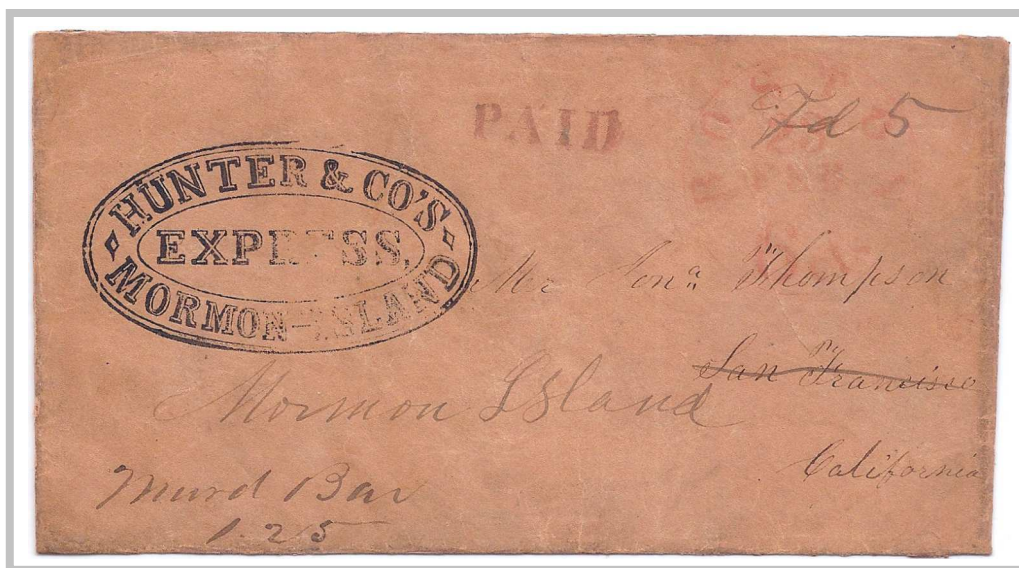 PAID
Fd 5
HUNTER & CO'S
EXPRESS.
MORMON-ISLAND
Mr Jona. Thompson
San Francisco
Mormon Island
California
Murd Bar
1.25